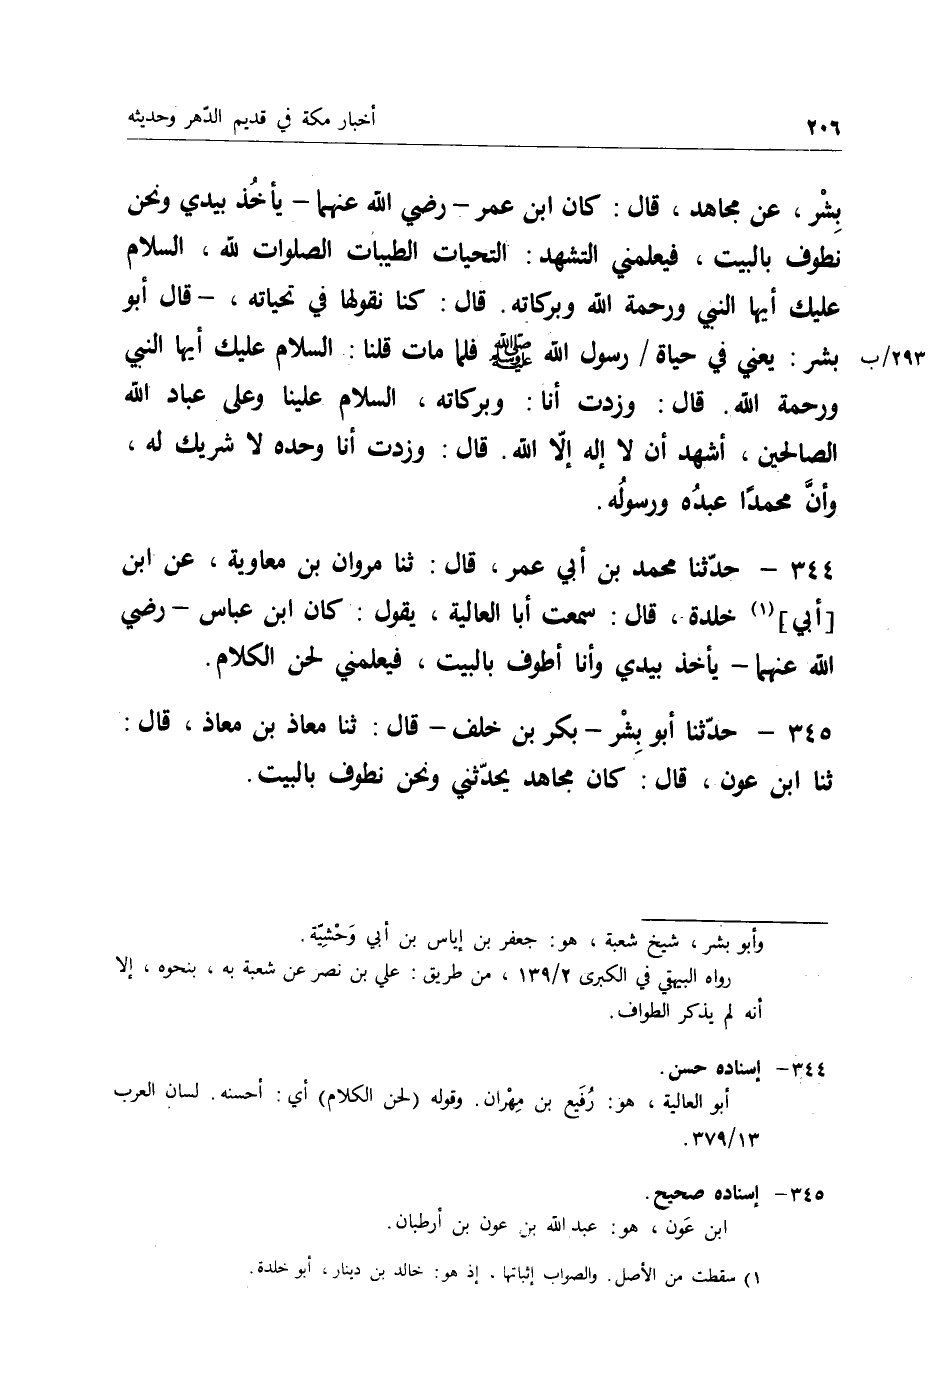 ٢٠٦ أخبار مكة في قديم الدّهر وحديثه
بِشْر ، عن مجاهد ، قال : كان ابن عمر – رضي الله عنهما – يأخُذ بيدي ونحن
نطوف بالبيت ، فيعلمني التشهد : التحيات الطيبات الصلوات لله ، السلام
عليك أيها النبي ورحمة الله وبركاته. قال : كنا نقولها في حياته ، – قال أبو
٢٩٣/ب بشر : يعني في حياة / رسول الله ﷺ فلما مات قلنا : السلام عليك أيها النبي
ورحمة الله. قال : وزدت أنا : وبركاته ، السلام علينا وعلى عباد الله
الصالحين ، أشهد أن لا إله إلّا الله. قال : وزدت أنا وحده لا شريك له ،
وأنَّ محمدًا عبدُه ورسولُه.
٣٤٤ – حدّثنا محمد بن أبي عمر ، قال : ثنا مروان بن معاوية ، عن ابن
[أبي](١) خلدة ، قال : سمعت أبا العالية ، يقول : كان ابن عباس – رضي
الله عنهما – يأخذ بيدي وأنا أطوف بالبيت ، فيعلمني لحن الكلام.
٣٤٥ – حدّثنا أبو بِشْر – بكر بن خلف – قال : ثنا معاذ بن معاذ ، قال :
ثنا ابن عون ، قال : كان مجاهد يحدّثني ونحن نطوف بالبيت.
وأبو بشر ، شيخ شعبة ، هو : جعفر بن إياس بن أبي وَحْشِيّة.
رواه البيهقي في الكبرى ١٣٩/٢ ، من طريق : علي بن نصر عن شعبة به ، بنحوه ، إلا
أنه لم يذكر الطواف.
٣٤٤– إسناده حسن.
أبو العالية ، هو : رُفَيع بن مِهْران. وقوله (لحن الكلام) أي : أحسنه. لسان العرب
٣٧٩/١٣.
٣٤٥– إسناده صحيح.
ابن عَون ، هو : عبد الله بن عون بن أرطبان.
١) سقطت من الأصل. والصواب إثباتها ، إذ هو : خالد بن دينار ، أبو خلدة.